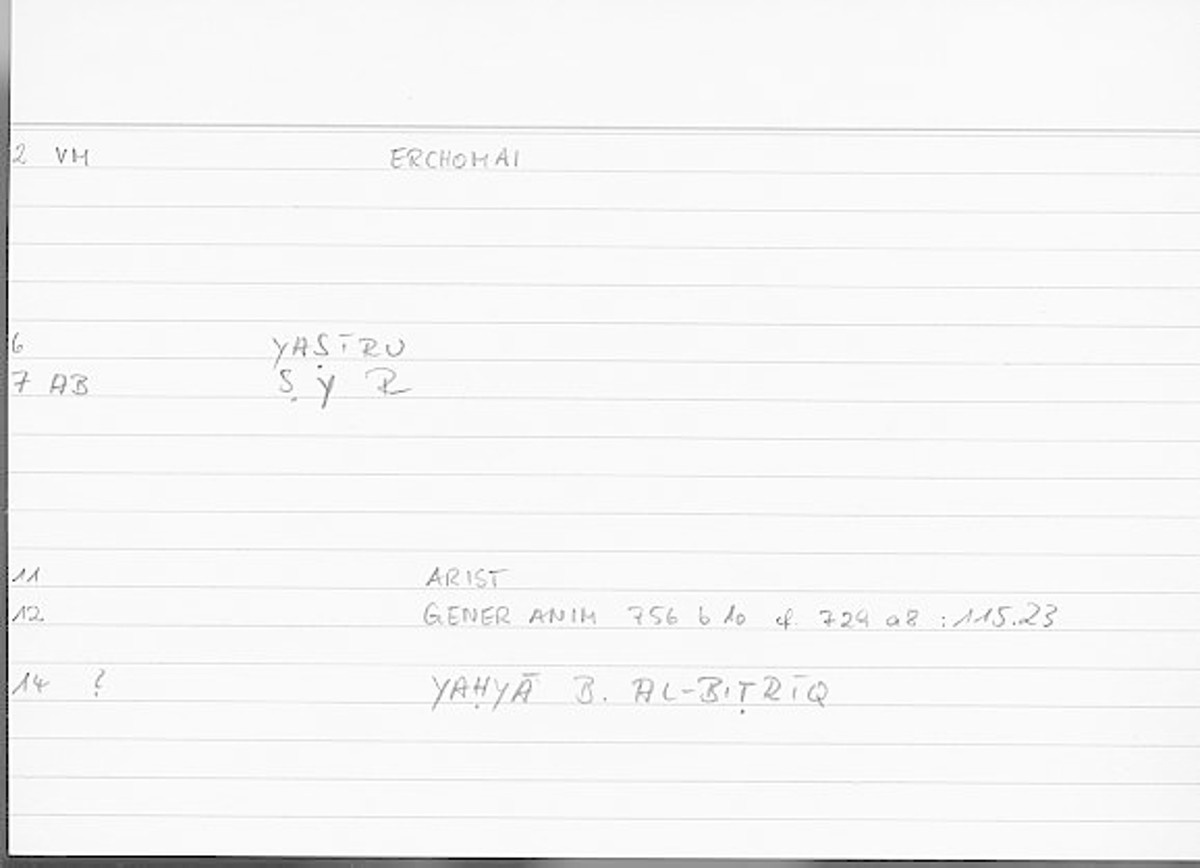 2 VM ERCHOMAI
6 YAṢĪRU
7 AB Ṣ Y R
11 ARIST
12 GENER ANIM 756 b 10 cf. 729 a8 : 115.23
14 ? YAḤYĀ B. AL-BIṬRĪQ